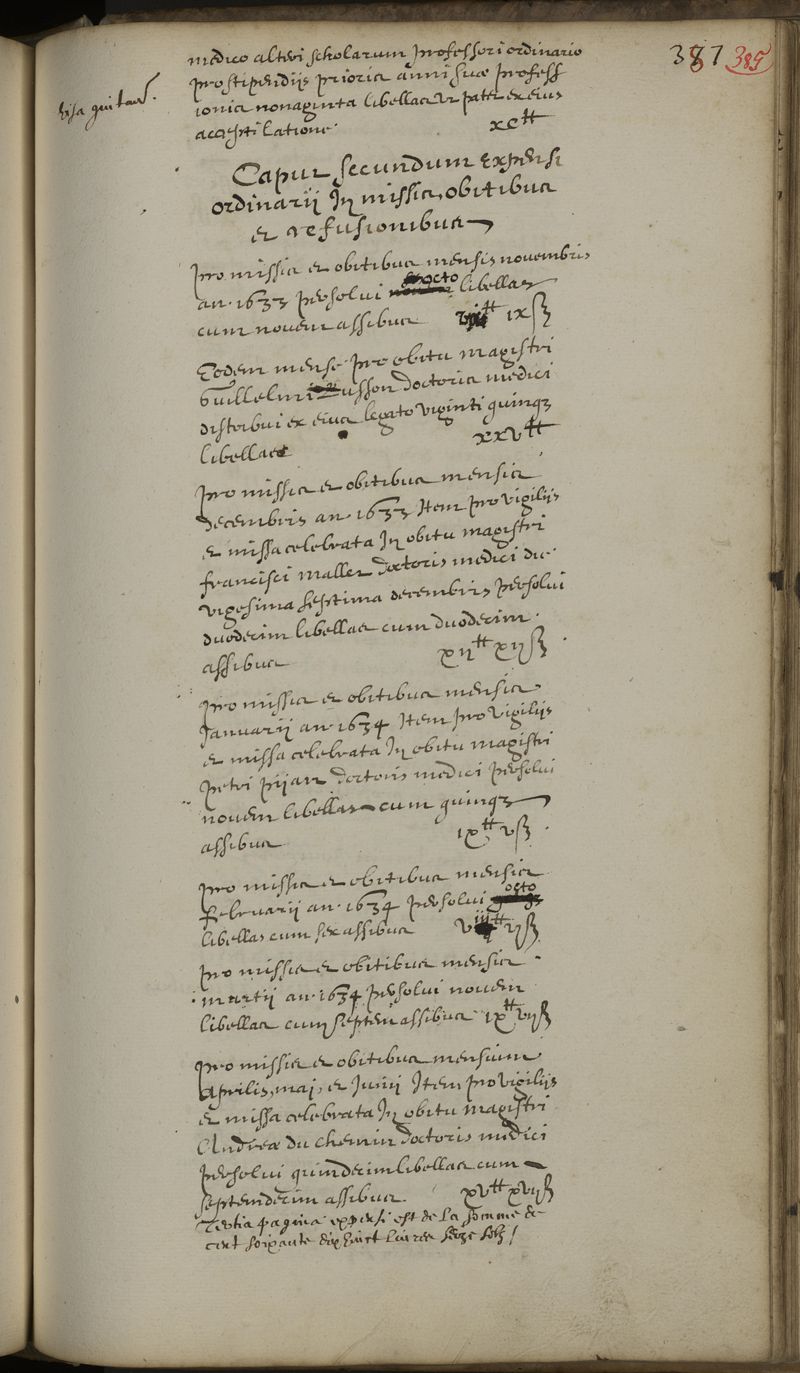 387 385
medico alteri scholarum professori ordinario
pro stipendiis prioris anni suæ profess
ionis nonaginta libellas ut patet ex eius
acceptilatione. xc₶
visa quittan.
Caput secundum expensi
ordinarii In missis, obitibus
et refusionibus
pro missis et obitibus mensis novembris
an. 1633 persolui octo libellas
cum novem assibus viii₶ ix ß
Eodem mense pro obitu magistri
Guillelmi usson doctoris medici
distribui ex eius legato viginti quinqz
libellas xxv₶
pro missis et obitibus mensis
decembris an. 1633 Item pro vigiliis
et missa celebrata In obitu magistri
francisci maller doctoris medici die
vigesima septima decembris persolui
duodecim libellas cum duodecim
assibus xii₶ xii ß
pro missis et obitibus mensis
Januarii an. 1634 Item pro vigiliis
et missa celebrata In obitu magistri
petri pijart doctoris medici persolui
novem libellas cum quinqz
assibus ix₶ v ß
pro missis et obitibus mensis
februarii an. 1634 persolui octo
libellas cum sex assibus viii₶ vi ß
pro missis et obitibus mensis
martii an. 1634 persolui novem
libellas cum septem assibus ix₶ vii ß
pro missis et obitibus mensium
Aprilis, maj, et Junii Item pro vigiliis
et missa celebrata In obitu magistri
Andreæ du chemin doctoris medici
persolui quindecim libellas cum
septemdecim assibus. xv₶ xvii ß
Tertia pagina expensi est de la somme de
cent soixante dix huict livres seize solz /